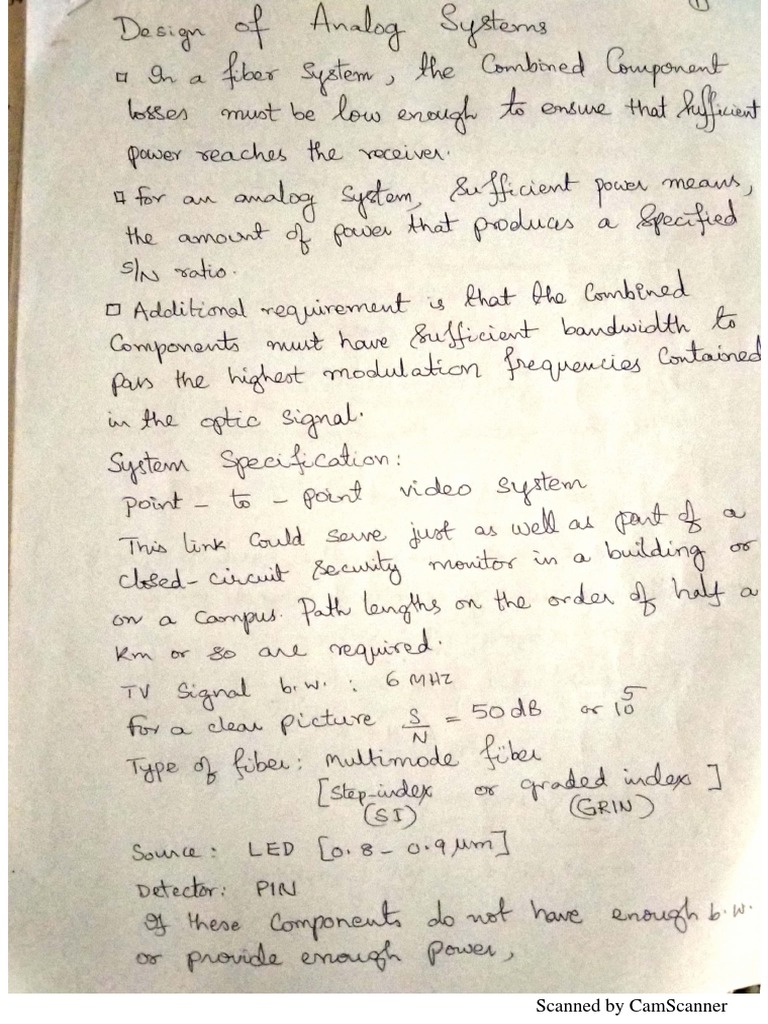 1
Design of Analog Systems
□ In a fiber system, the Combined Component
losses must be low enough to ensure that sufficient
power reaches the receiver.
□ for an analog system, sufficient power means,
the amount of power that produces a specified
S/N ratio.
□ Additional requirement is that the Combined
Components must have sufficient bandwidth to
pass the highest modulation frequencies Contained
in the optic signal.
System Specification:
point - to - point video system
This link Could serve just as well as part of a
closed-circuit security monitor in a building or
on a campus. Path lengths on the order of half a
km or so are required.
TV signal b.w. : 6 MHz
for a clear picture S/N = 50 dB or 10^5
Type of fiber: multimode fiber
[step-index or graded index]
(SI) (GRIN)
Source: LED [0.8 - 0.9 μm]
Detector: PIN
If these Components do not have enough b.w.
or provide enough power,
Scanned by CamScanner